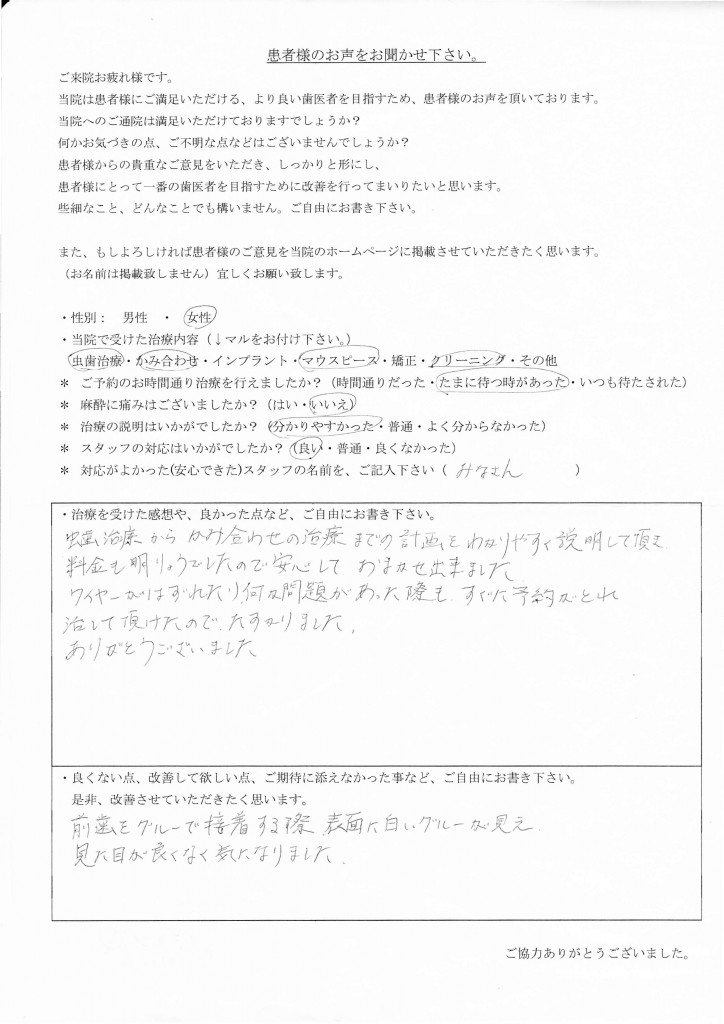 患者様のお声をお聞かせ下さい。
ご来院お疲れ様です。
当院は患者様にご満足いただける、より良い歯医者を目指すため、患者様のお声を頂いております。
当院へのご通院は満足いただけておりますでしょうか?
何かお気づきの点、ご不明な点などはございませんでしょうか?
患者様からの貴重なご意見をいただき、しっかりと形にし、
患者様にとって一番の歯医者を目指すために改善を行ってまいりたいと思います。
些細なこと、どんなことでも構いません。ご自由にお書き下さい。
また、もしよろしければ患者様のご意見を当院のホームページに掲載させていただきたく思います。
(お名前は掲載致しません)宜しくお願い致します。
・性別: 男性 ・ 女性
・当院で受けた治療内容(↓マルをお付け下さい。)
虫歯治療・かみ合わせ・インプラント・マウスピース・矯正・クリーニング・その他
* ご予約のお時間通り治療を行えましたか?(時間通りだった・たまに待つ時があった・いつも待たされた)
* 麻酔に痛みはございましたか?(はい・いいえ)
* 治療の説明はいかがでしたか?(分かりやすかった・普通・よく分からなかった)
* スタッフの対応はいかがでしたか?(良い・普通・良くなかった)
* 対応がよかった(安心できた)スタッフの名前を、ご記入下さい( みなさん )
・治療を受けた感想や、良かった点など、ご自由にお書き下さい。
虫歯治療から かみ合わせの治療までの計画をわかりやすく説明して頂き、
料金も明りょうでしたので安心して おまかせ出来ました
ワイヤーがはずれたり、何か問題があった際も、すぐに予約がとれ
治して頂けたので、たすかりました。
ありがとうございました
・良くない点、改善して欲しい点、ご期待に添えなかった事など、ご自由にお書き下さい。
是非、改善させていただきたく思います。
前歯をグルーで接着する際、表面に白いグルーが見え、
見た目が良くなく気になりました。
ご協力ありがとうございました。